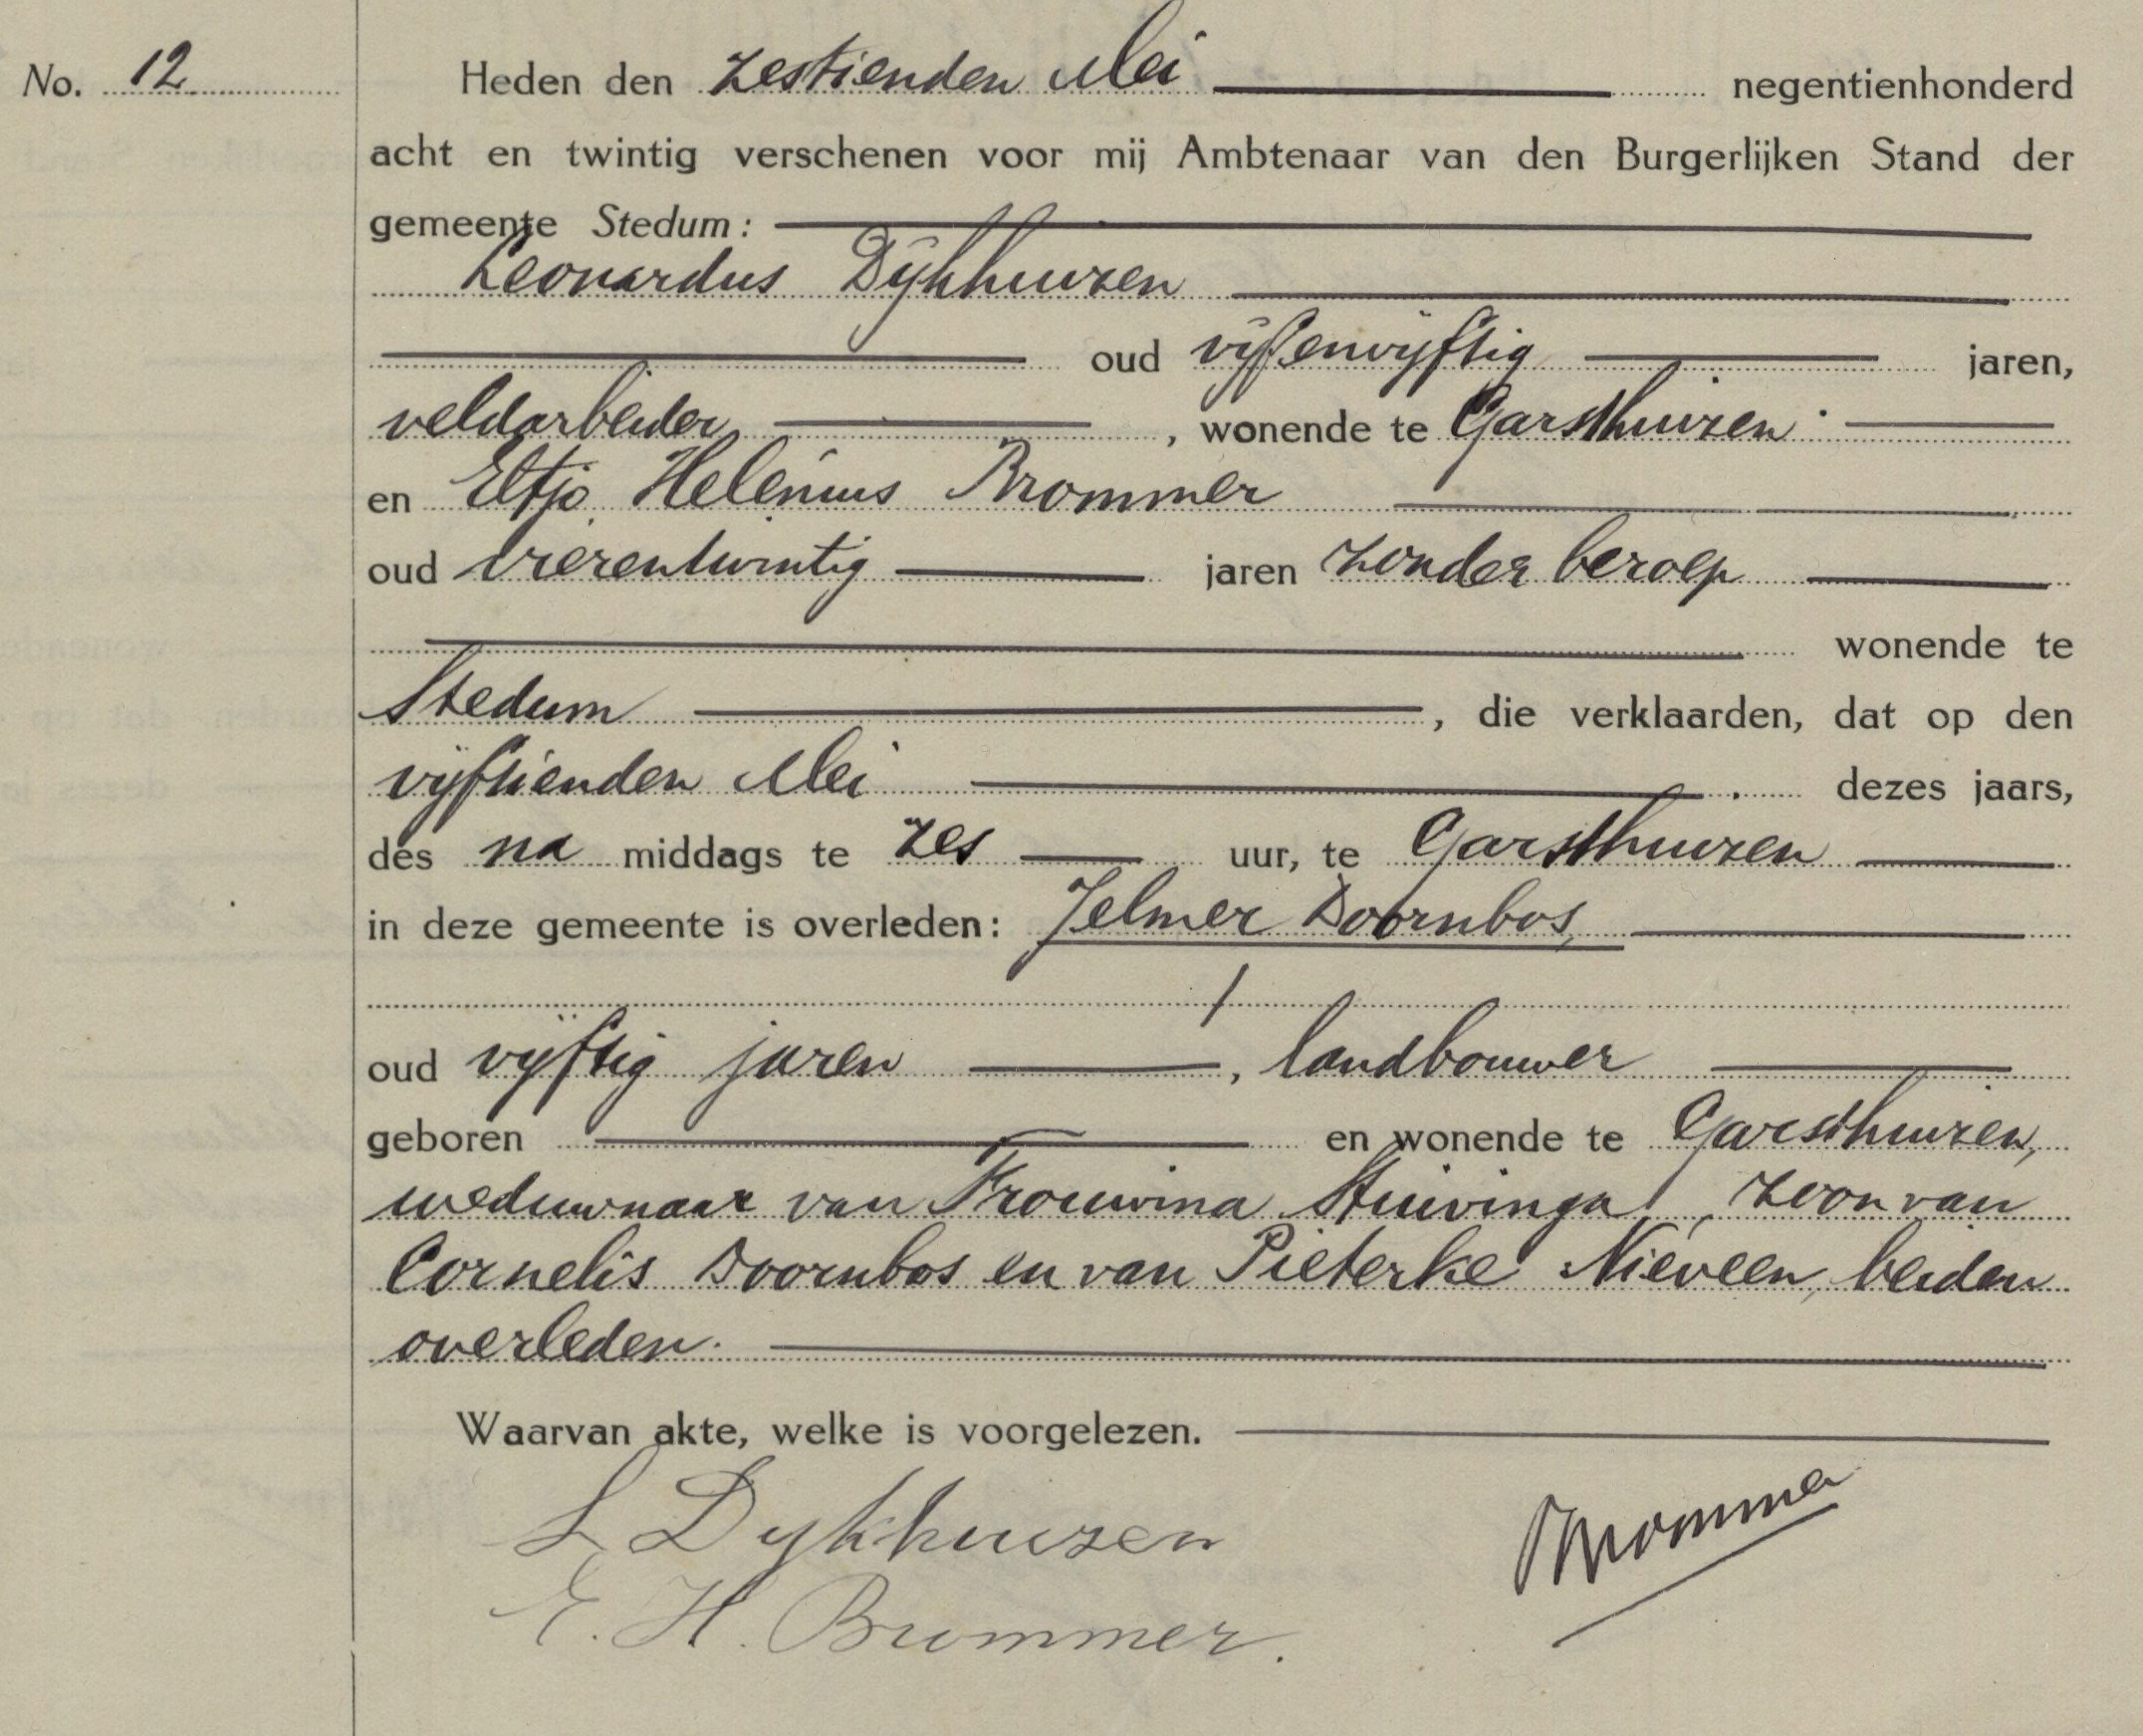 No. 12
Heden den zestienden Mei negentienhonderd
acht en twintig verschenen voor mij Ambtenaar van den Burgerlijken Stand der
gemeente Stedum:
Leonardus Dijkhuizen
oud vijfenvijftig jaren,
veldarbeider, wonende te Garsthuizen
en Eltjo Helenius Brommer
oud vierentwintig jaren zonder beroep
wonende te
Stedum, die verklaarden, dat op den
vijftienden Mei dezes jaars,
des na middags te zes uur, te Garsthuizen
in deze gemeente is overleden: Jelmer Doornbos,
oud vijftig jaren, landbouwer
geboren en wonende te Garsthuizen,
weduwnaar van Trouwina Stuivinga, zoon van
Cornelis Doornbos en van Pieterke Nieveen, beiden
overleden.
Waarvan akte, welke is voorgelezen.
L Dykhuizen
Brommer
E. H. Brommer.